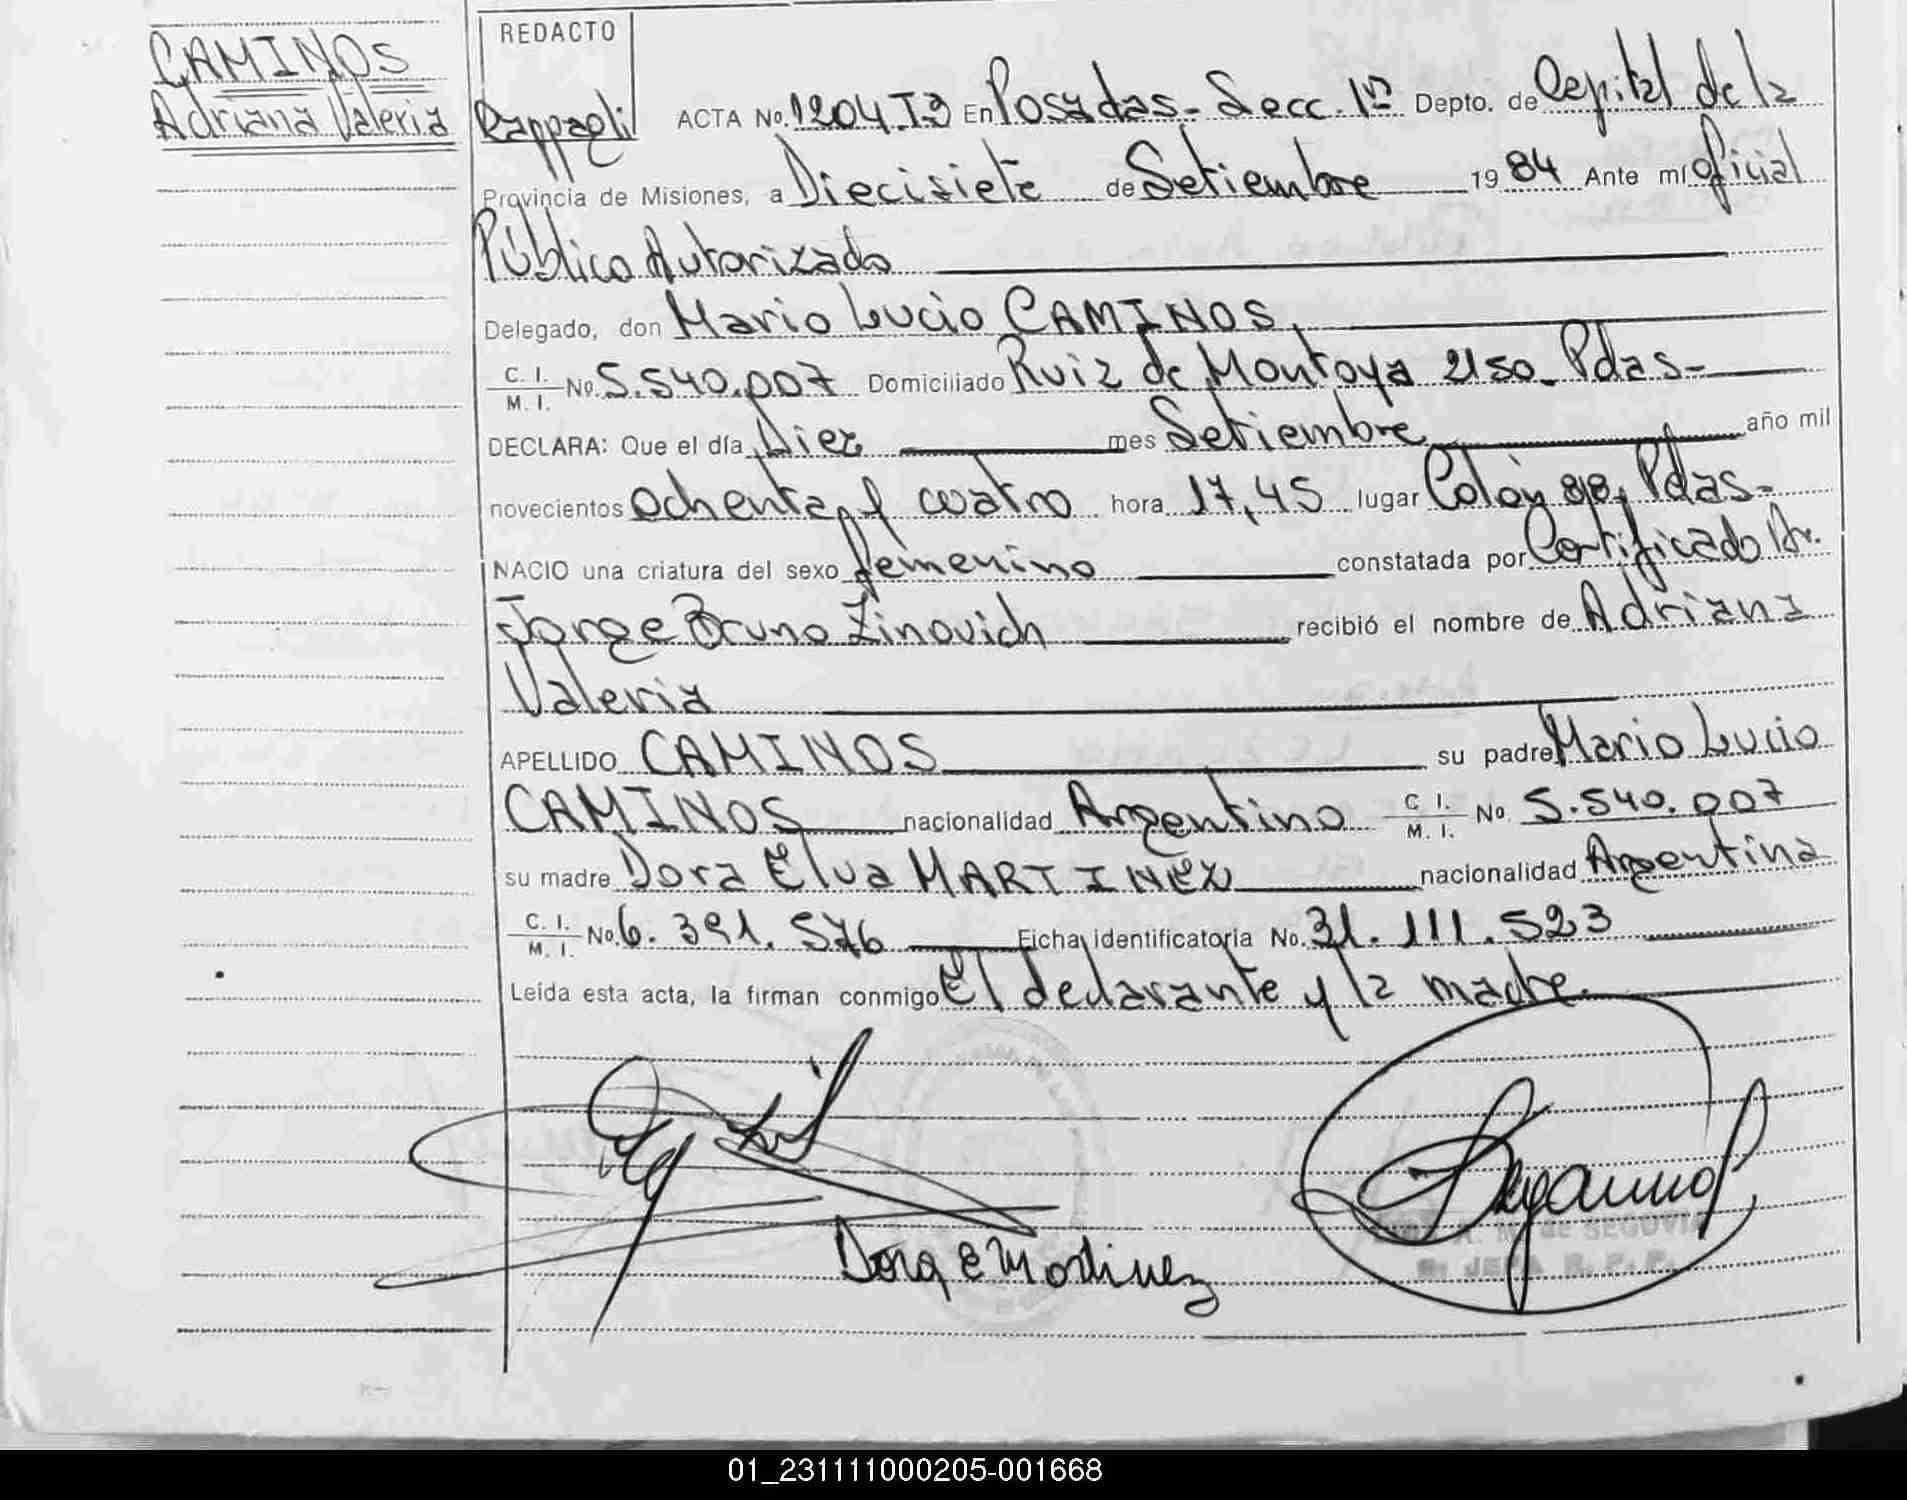 CAMINOS
Adriana Valeria
REDACTO
Rappagli
ACTA No. 1204. T3 En Posadas - Secc. 1ra Depto. de Capital de la
Provincia de Misiones, a Diecisiete de Setiembre 19 84 Ante mí oficial
Público Autorizado
Delegado, don Mario Lucio CAMINOS,
C. I. / M. I. No. 5.540.007 Domiciliado Ruiz de Montoya 2150. Pdas-
DECLARA: Que el día Diez mes Setiembre año mil
novecientos ochenta y cuatro hora 17,45 lugar Colón 818, Pdas-
NACIO una criatura del sexo femenino constatada por Certificado Dr.
Jorge Bruno Zinovich recibió el nombre de Adriana
Valeria
APELLIDO CAMINOS su padre Mario Lucio
CAMINOS nacionalidad Argentino C. I. / M. I. No. 5.540.007
su madre Dora Elva MARTINEZ nacionalidad Argentina
C. I. / M. I. No. 6.391.576 Ficha identificatoria No. 31.111.523
Leída esta acta, la firman conmigo El declarante y la madre.
Dora E Martinez
de SEGOVIA
JEFA R. P. P.
01_231111000205-001668